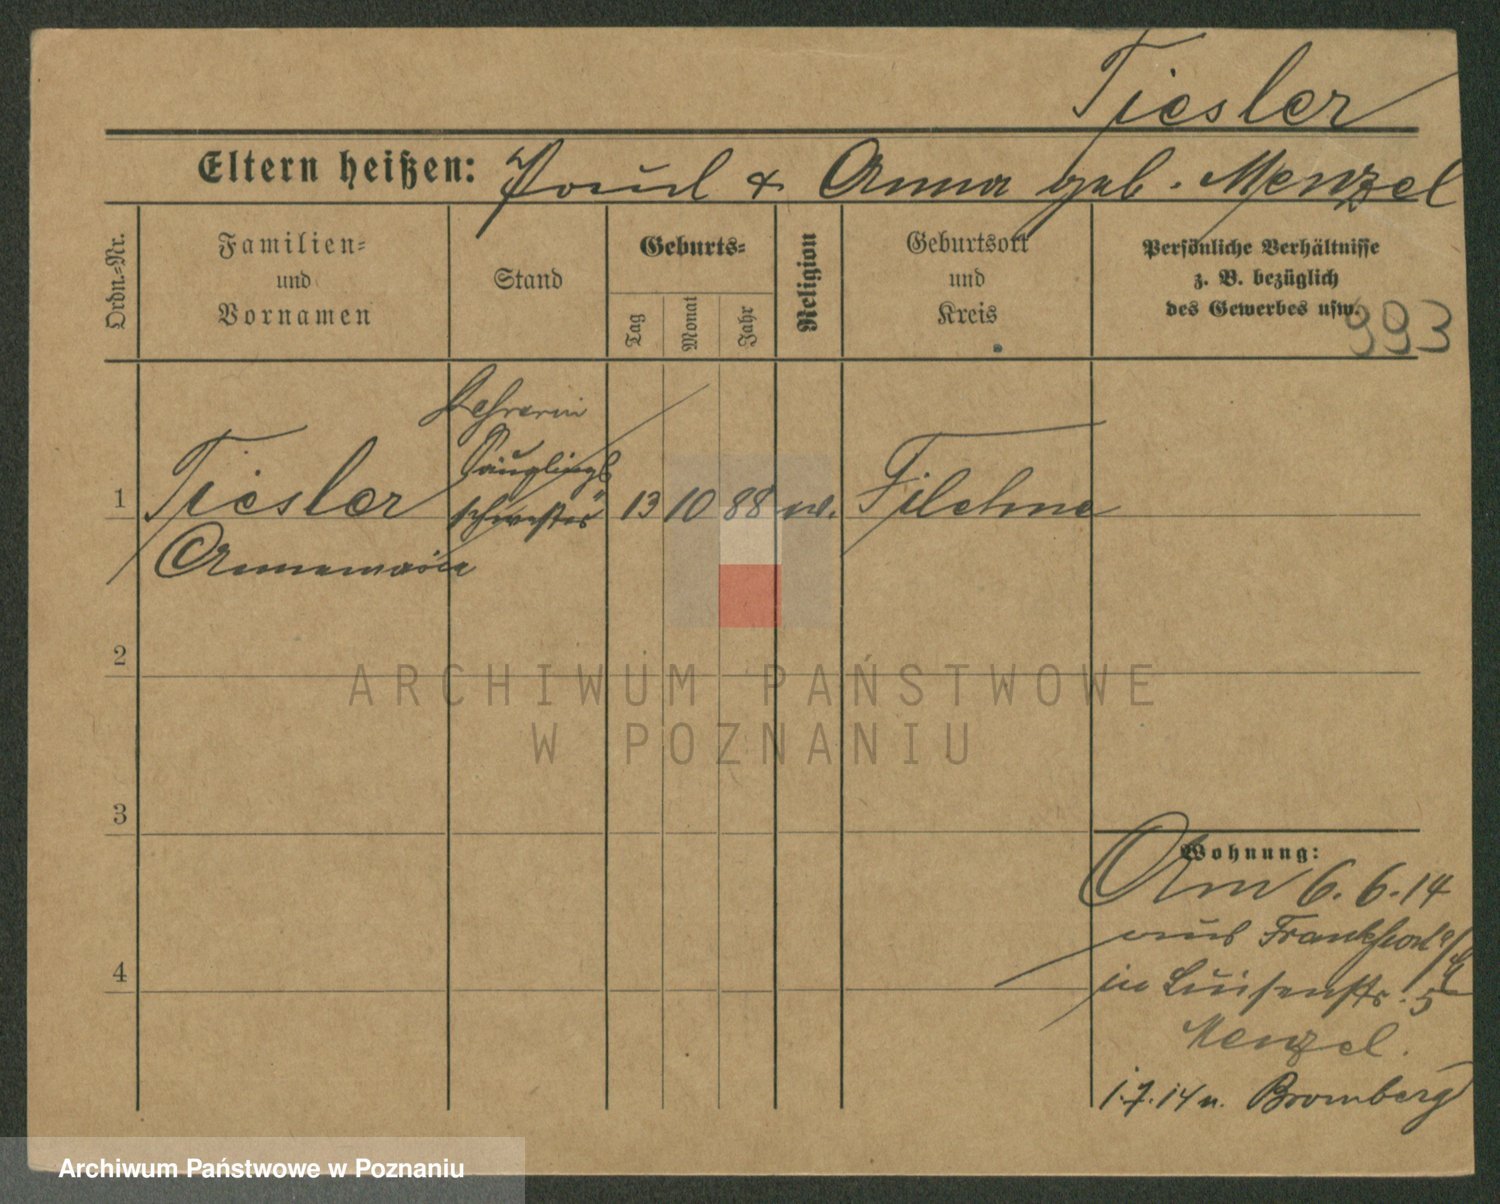 Tiesler
Eltern heißen: Paul & Anna geb. Menzel
Ordn.-Nr.
Familien-
und
Vornamen
Stand
Geburts-
Tag
Monat
Jahr
Religion
Geburtsort
und
Kreis
Persönliche Verhältnisse
z. B. bezüglich
des Gewerbes usw.
993
Lehrerin
Säuglings
schwester
1 Tiesler 13 10 88 Filehne
Annemarie
2
3
4
Wohnung:
Am 6.6.14
aus Frankfurt
in Luisenstr. 5
Menzel.
1.7.14 n. Bromberg
ARCHIWUM PAŃSTWOWE
W POZNANIU
Archiwum Państwowe w Poznaniu